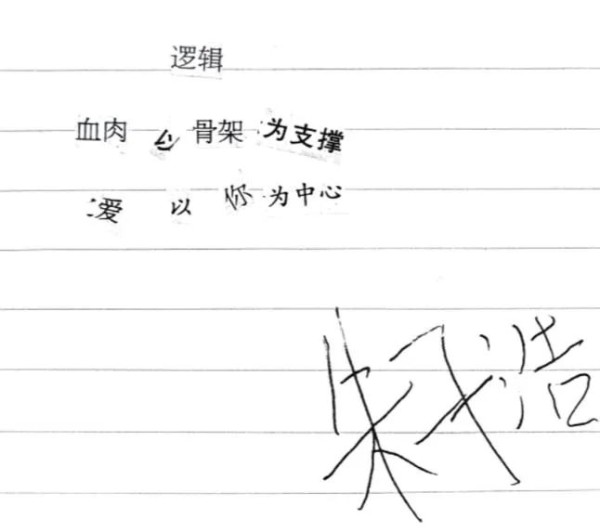 逻辑
血肉 以 骨架 为支撑
爱 以 你 为中心